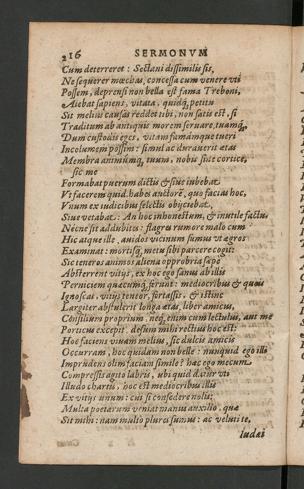 216 SERMONVM
Cum deterreret: Sectani dissimilis sis,
Ne sequerer mœchas, concessa cum venere vti
Possem, deprensi non bella est fama Treboni,
Aiebat sapiens, vitatu, quidq́ petitu
Sit melius causas reddet tibi, non satis est, si
Traditum ab antiquis morem seruare, tuamq́,
Dum custodis eget, vitam famamque tueri
Incolumem possim: simul ac durauerit ætas
Membra animumq́ tuum, nabis sine cortice,
sic me
Formabat puerum dictis & siue iubebat
Vt facerem quid, habes auctorē, quo facias hoc,
Vnum ex iudicibus selectis obijciebat,
Siue vetabat: An hoc inhonestum, & inutile factu,
Necne sit addubites: flagret rumore malo cum
Hic atque ille, auidos vicinum funus vt ægros
Examinat: mortisq́ metu sibi parcere cogit:
Sic teneros animos aliena opprobria sæpe
Absterrent vitijs, ex hoc ego sanus ab illis
Perniciem quæcumq́ ferunt: mediocribus & queis
Ignoscas, vitijs teneor, fortassis, & istinc
Largiter abstulerit longa ætas, liber amicus,
Consilium proprium: neq́ enim cum lectulus, aut me
Porticus excepit. desum mihi rectius hoc est:
Hoc faciens viuam melius, sic dulcis amicis
Occurram, hoc quidam non belle: nunquid ego illi
Imprudens olim faciam simile? hæc ego mecum
Compressis agito labris, vbi quid datur oti
Illudo chartis, hoc est mediocribus illis
Ex vitijs vnum: cui si consedere nolis:
Multa poetarum veniat manus auxilio, quæ
Sit mihi: nam multo plures sumus: ac veluti te,
Iudæi